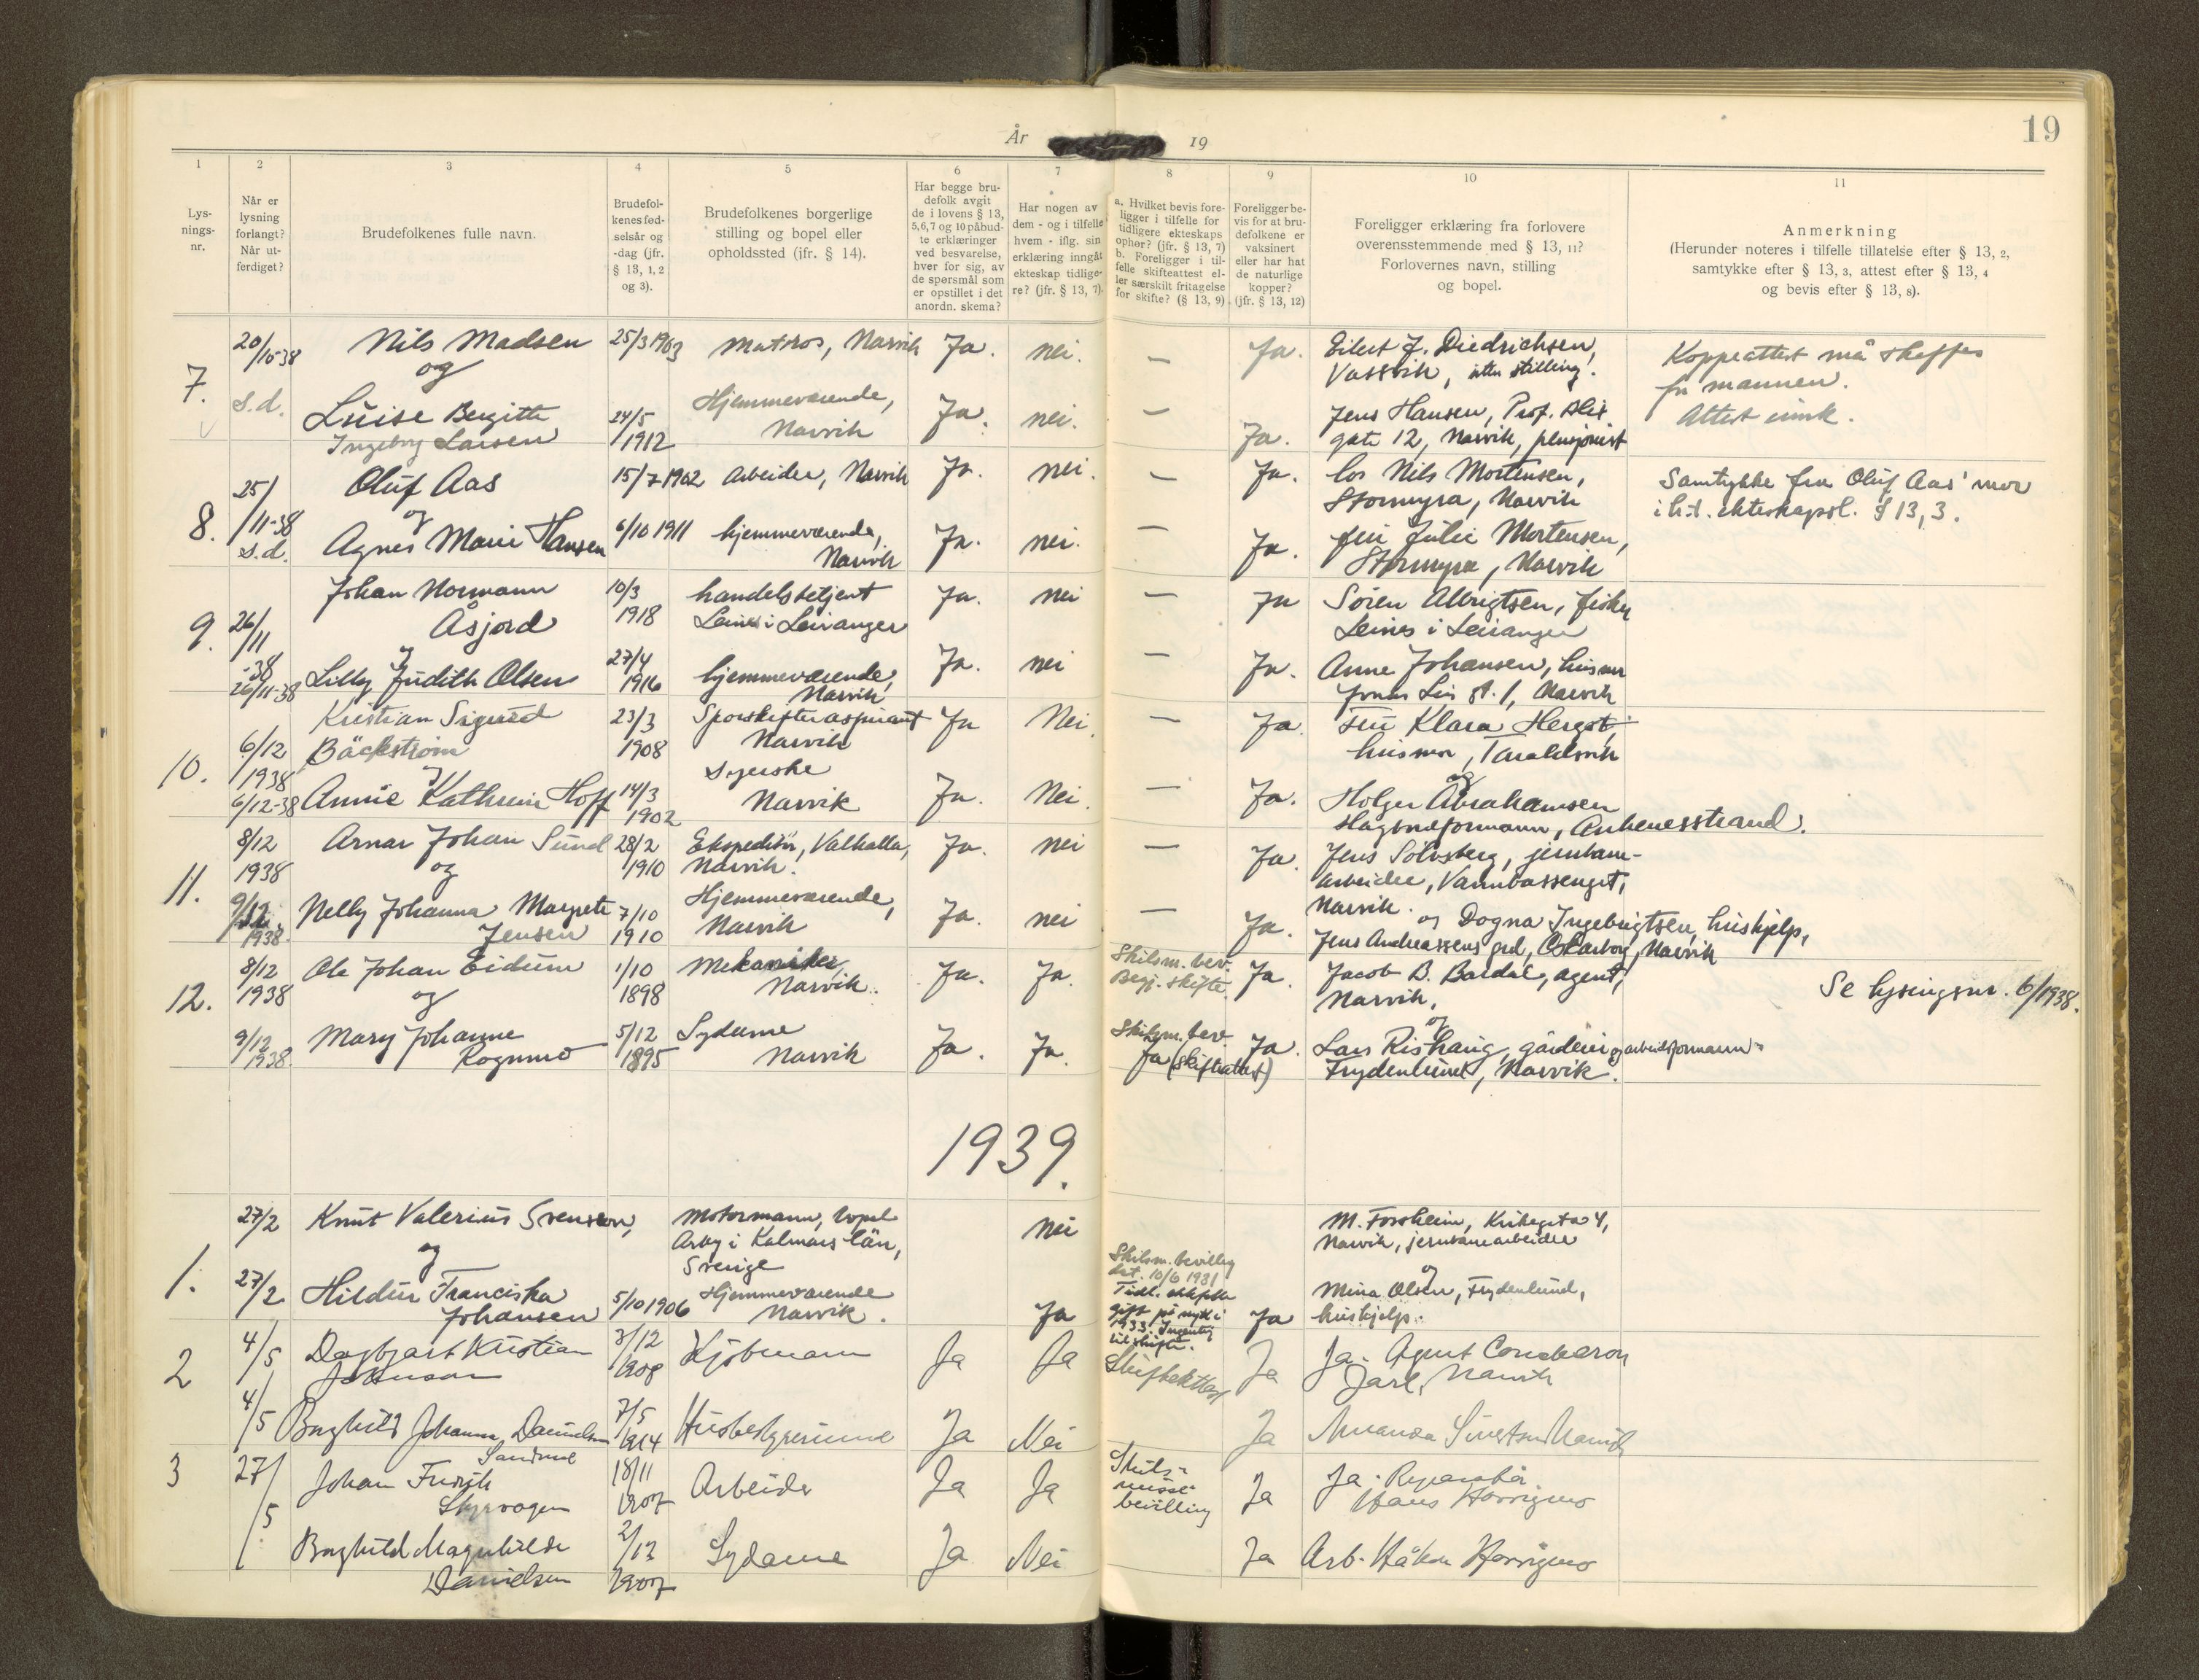 19
År 19
1 2 3 4 5 6 7 8 9 10 11
Lys-
nings-
nr.
Når er
lysning
forlangt?
Når ut-
ferdiget?
Brudefolkenes fulle navn.
Brudefol-
kenes fød-
selsår og
-dag (jfr.
§ 13, 1, 2
og 3).
Brudefolkenes borgerlige
stilling og bopel eller
opholdssted (jfr. § 14).
Har begge bru-
defolk avgit
de i lovens § 13,
5,6,7 og 10 påbud-
te erklæringer
ved besvarelse,
hver for sig, av
de spørsmål som
er opstillet i det
anordn. skema?
Har nogen av
dem - og i tilfelle
hvem - iflg. sin
erklæring inngåt
ekteskap tidlige-
re? (jfr. § 13, 7).
a. Hvilket bevis fore-
ligger i tilfelle for
tidligere ekteskaps
ophør? (jfr. § 13, 7)
b. Foreligger i til-
felle skifteattest el-
ler særskilt fritagelse
for skifte? (§ 13, 9).
Foreligger be-
vis for at bru-
defolkene er
vaksinert
eller har hat
de naturlige
kopper?
(jfr. § 13, 12)
Foreligger erklæring fra forlovere
overensstemmende med § 13, 11?
Forlovernes navn, stilling
og bopel.
Anmerkning
(Herunder noteres i tilfelle tillatelse efter § 13, 2,
samtykke efter § 13, 3, attest efter § 13, 4
og bevis efter § 13, 8).
7.
20/10-38 Nils Madsen 25/3 1903 Matros, Narvik Ja. nei. — Ja. Eilert J. Diedrichsen,
Vassvik, uten stilling.
Koppeattest må skaffes
for mannen.
Attest innk.
og
s.d. Luise Bergitte
Ingeborg Larsen 24/5
1912 Hjemmeværende,
Narvik Ja. nei. — Ja. Jens Hansen, Prof.
gate 12, Narvik, pensjonist
8.
25/11-38 Oluf Aas 15/7 1902 Arbeider, Narvik Ja. nei. — Ja. Nils Mortensen,
Stormyra, Narvik
Samtykke fra Oluf Aas' mor
i h.t. ekteskapsl. § 13, 3.
og
s.d. Agnes Marie Hansen 6/10 1911 hjemmeværende,
Narvik Ja. nei. — Ja. Julie Mortensen,
Stormyra, Narvik
9.
26/11-38 Johan Normann
Åsjord 10/3
1918 handelsbetjent
Leines i Leiranger Ja. nei — Ja Søren Albrigtsen, fisker
Leines i Leiranger
og
26/11-38 Lilly Judith Olsen 27/4
1916 hjemmeværende,
Narvik Ja. nei — Ja. Anne Johansen, husmor
Jonas Lies gt. 1, Narvik
10.
6/12
1938 Kristian Sigurd
Bäckstrøm 23/3
1908 Sporskifteraspirant
Narvik Ja Nei. — Ja. Fru Klara Hergot,
husmor, Taraldsvik
og
6/12-38 Annie Kathrine Hoff 14/3
1902 Syerske
Narvik Ja. Nei. — Ja. Holger Abrahamsen
Ankenesstrand.
11.
8/12
1938 Arnar Johan Sund 28/2
1910 Ekspeditør, Valhalla,
Narvik. Ja. nei — Ja. Jens Sølvsberg, jernbane-
arbeider, Vannbassenget,
Narvik.
og
9/12
1938. Nelly Johanna Margrete
Jensen 7/10
1910 Hjemmeværende,
Narvik Ja. nei — Ja. og Dogna Ingebrigtsen, hushjelp,
Jens Andreassens grd, Narvik
12.
8/12
1938 Ole Johan Eidum 1/10
1898 Mekaniker,
Narvik. Ja. Ja. Skilsm. bev.
Begj. skifte. Ja. Jacob B. Bardal, agent,
Narvik.
Se lysningsnr. 6/1938.
og
9/12
1938. Mary Johanne
Rognmo 5/12
1895 Sydame
Narvik Ja. Ja. Skilsm. bev.
Ja (Skifteattest) Ja. og
Lars Rishaug, gårdeier og arbeidsformann
Frydenlund, Narvik.
1939.
1.
27/2 Knut Valerius Svenson, Motormann, bopel
Arby i Kalmars län,
Sverige nei M. Forsheim, Kirkegata 4,
Narvik, jernbanearbeider
og
27/2 Hildur Franciska
Johansen 5/10 1906 Hjemmeværende
Narvik. Ja Skilsm. bevilling
dat. 10/6 1931
Tidl. ektefelle
gift på nytt i
1933. Ingenting
til skifte. Ja og
Mina Olsen, Frydenlund,
hushjelp.
2
4/5 Dagbjart Kristian
Johnsen 3/12
1908 Kjøbmann Ja Ja Skifteattest Ja Ja. Agent
Jarl, Narvik
4/5 Borghild Johanna Danielsen
7/5
1914 Husbestyrerinne Ja Nei Ja Amanda Sivertsen Narvik
3
27/5 Johan Fredrik
18/11
1907 Arbeider Ja Ja Skils-
misse-
bevilling Ja Ja. Reparatør
Hans
Borghild Magnhilde
Danielsen 2/12
1907 Sydame Ja Nei Ja Arb. Håkon